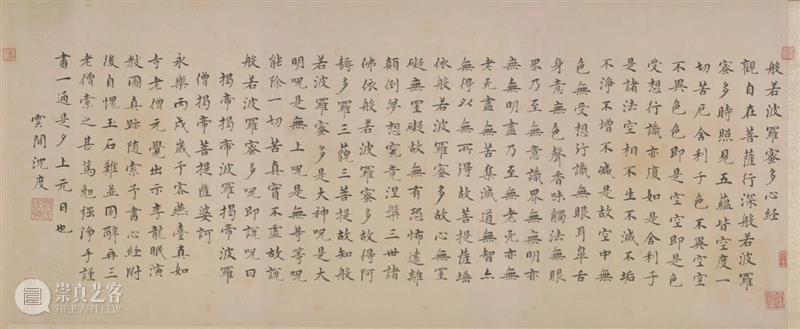 般若波羅蜜多心經
觀自在菩薩行深般若波羅
蜜多時照見五蘊皆空度一
切苦厄舍利子色不異空空
不異色色即是空空即是色
受想行識亦復如是舍利子
是諸法空相不生不滅不垢
不淨不增不減是故空中無
色無受想行識無眼耳鼻舌
身意無色聲香味觸法無眼
界乃至無意識界無無明亦
無無明盡乃至無老死亦無
老死盡無苦集滅道無智亦
無得以無所得故菩提薩埵
依般若波羅蜜多故心無罣
礙無罣礙故無有恐怖遠離
顛倒夢想究竟涅槃三世諸
佛依般若波羅蜜多故得阿
耨多羅三藐三菩提故知般
若波羅蜜多是大神呪是大
明呪是無上呪是無等等呪
能除一切苦真實不虛故說
般若波羅蜜多呪即說呪曰
揭帝揭帝波羅揭帝波羅
僧揭帝菩提薩婆訶
永樂丙戌歲予客燕臺真如
寺老僧元覺出示李龍眠演
教圖真跡隨索予書心經附
後自愧玉石難並固辭再三
老僧索之甚篤勉强淨手謹
書一通是夕上元日也
雲間沈度
崇真艺客